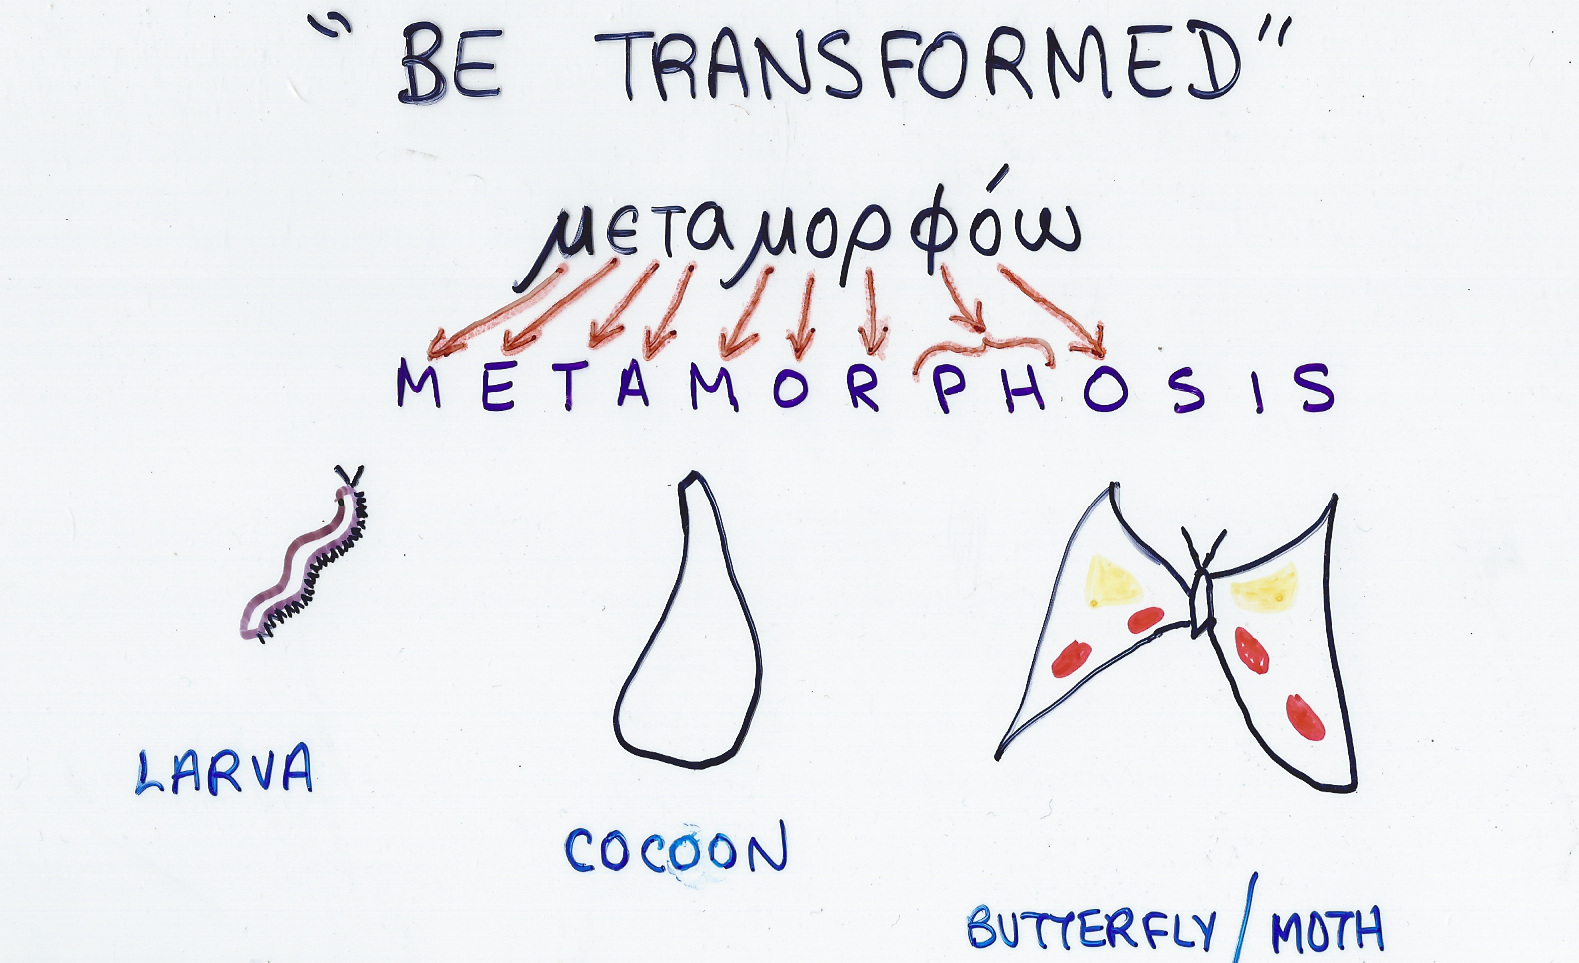 "BE TRANSFORMED"
μεταμορφόω
METAMORPHOSIS
LARVA
COCOON
BUTTERFLY/MOTH